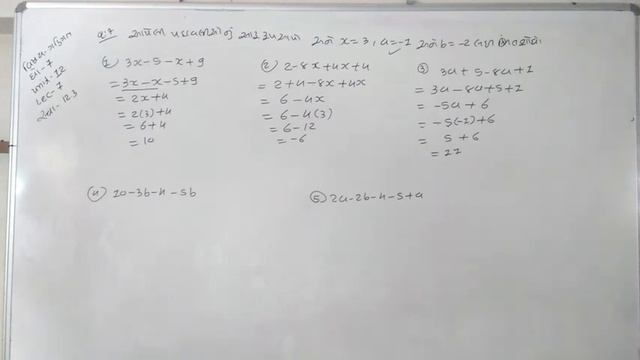 ધો - 7
unit - 12
Lec - 7
સ્વા - 12.3
પ્ર.7 આપેલા પદાવલીઓનું સાદુંરૂપ આપો અને x = 3, a = -1 અને b = -2 લઇ કિંમત શોધો.
① 3x - 5 - x + 9
= 3x - x - 5 + 9
= 2x + 4
= 2(3) + 4
= 6 + 4
= 10
② 2 - 8x + 4x + 4
= 2 + 4 - 8x + 4x
= 6 - 4x
= 6 - 4(3)
= 6 - 12
= -6
③ 3a + 5 - 8a + 1
= 3a - 8a + 5 + 1
= -5a + 6
= -5(-1) + 6
= 5 + 6
= 11
④ 10 - 3b - 4 - 5b
⑤ 2a - 2b - 4 - 5 + a